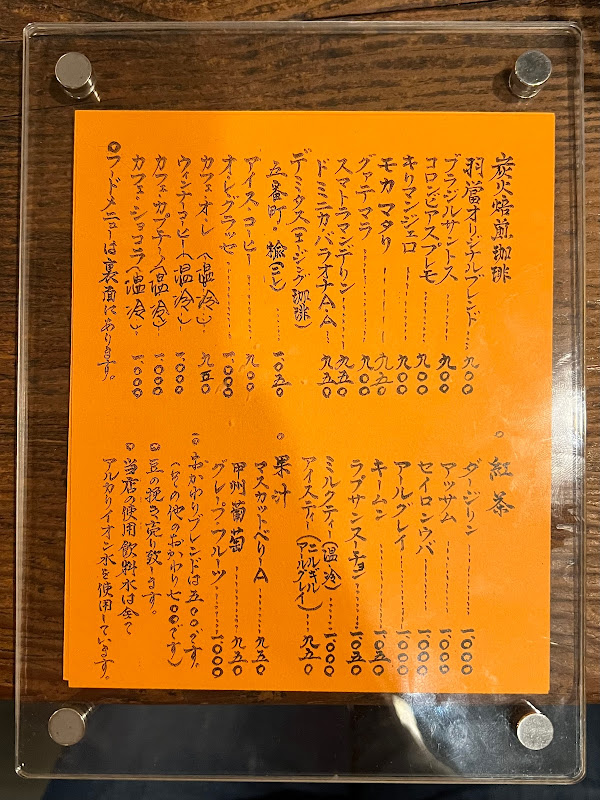 炭火焙煎珈琲
羽當オリジナルブレンド……九〇〇
ブラジルサントス……九〇〇
コロンビアスプレモ……九〇〇
キリマンジェロ……九〇〇
モカマタリ……九五〇
グァテマラ……九〇〇
スマトラマンデリン……九五〇
ドミニカバラオナA.A…九五〇
デミタス(エージング珈琲)
五番町・楡(ニレ)……一〇五〇
アイスコーヒー……九〇〇
オ・レグラッセ……一、〇〇〇
カフェ・オ・レ(温冷)…九五〇
ウィンナコーヒー(温冷)…一、〇〇〇
カフェ・カプチーノ(温冷)…一、〇〇〇
カフェ・ショコラ(温冷)…一、〇〇〇
◎フードメニューは裏面にあります。
。紅茶
ダージリン……一、〇〇〇
アッサム……一、〇〇〇
セイロンウバ……一、〇〇〇
アールグレイ……一、〇〇〇
キームン……一〇五〇
ラプサンスーチョン……一〇五〇
ミルクティー(温冷)……一、〇〇〇
アイスティー(ニルギル アールグレイ)…九五〇
。果汁
マスカットベリーA……九五〇
甲州葡萄……九五〇
グレープフルーツ……一、〇〇〇
。おかわりブレンドは五〇〇です。
(その他のおかわり七〇〇です)
。豆の挽き売り致します。
。当店の使用飲料水は全て
アルカリイオン水を使用しています。